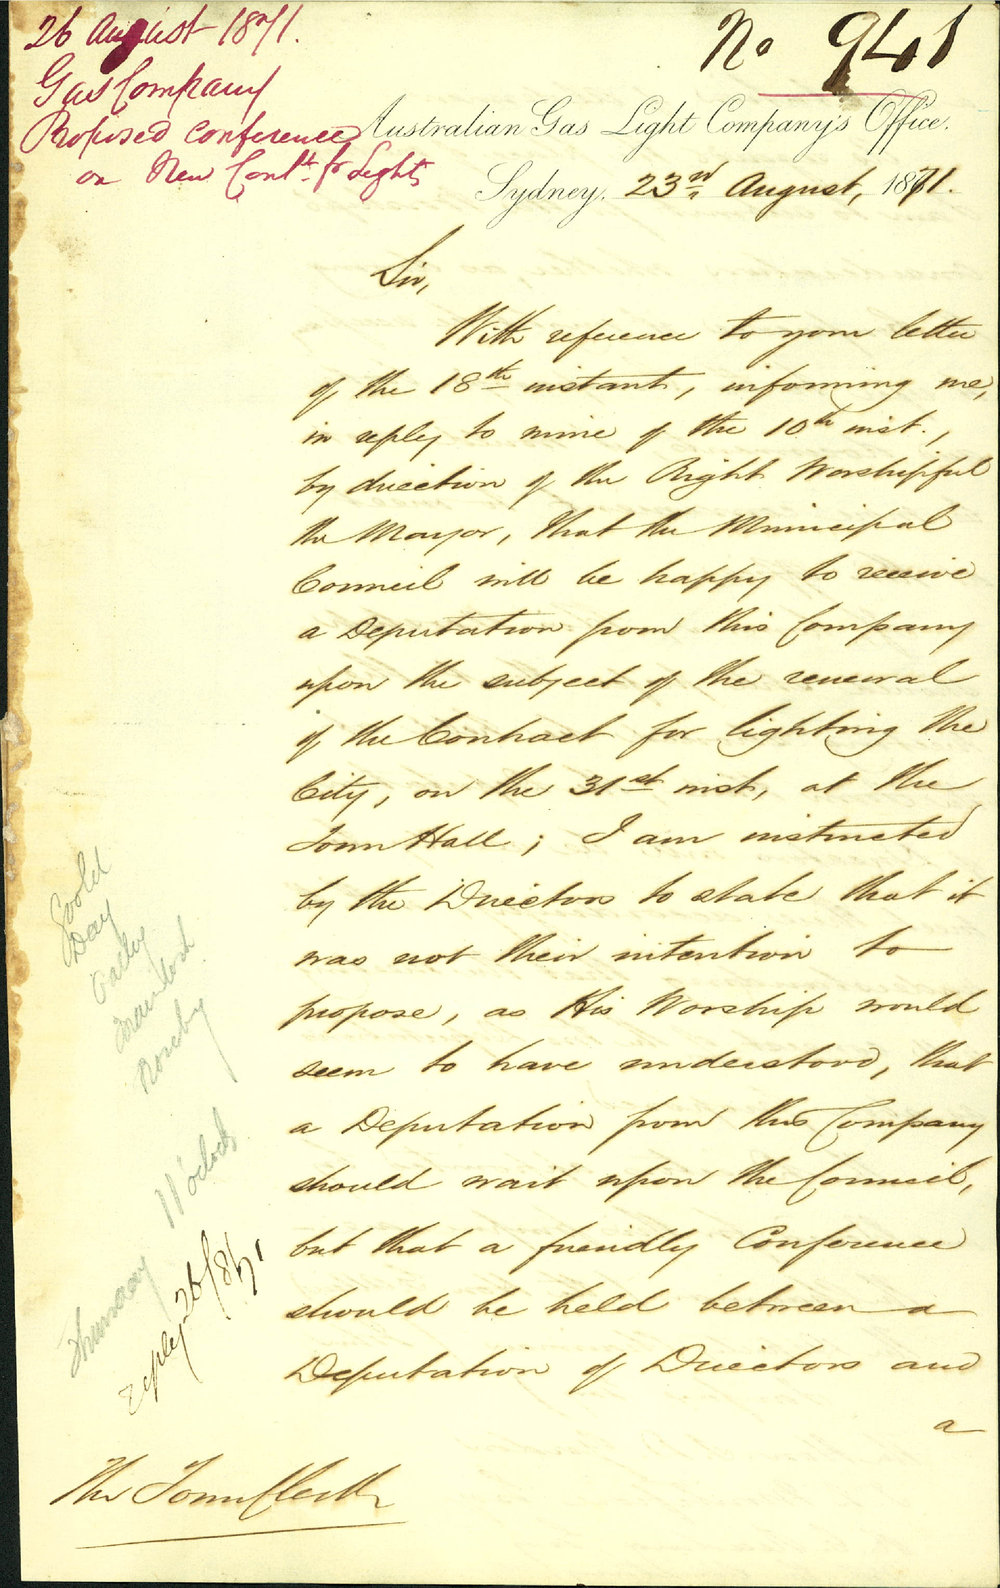 26 August 1871.
Gas Company
Proposed Conference
on New Cont.t for Lights
No 941
Australian Gas Light Company's Office.
Sydney, 23rd August, 1871.
Sir,
With reference to your letter
of the 18th instant, informing me,
in reply to mine of the 10th inst.,
by direction of the Right Worshipful
the Mayor, that the Municipal
Council will be happy to receive
a Deputation from this Company
upon the subject of the renewal
of the Contract for lighting the
City, on the 31st inst, at the
Town Hall; I am instructed
by the Directors to state that it
was not their intention to
propose, as His Worship would
seem to have understood, that
a Deputation from this Company
should wait upon the Council,
but that a friendly Conference
should be held between a
Deputation of Directors and
a
The Town Clerk
Goold
Day
Oatley
Roseby
Thursday 11 o'clock
reply 26/8/71